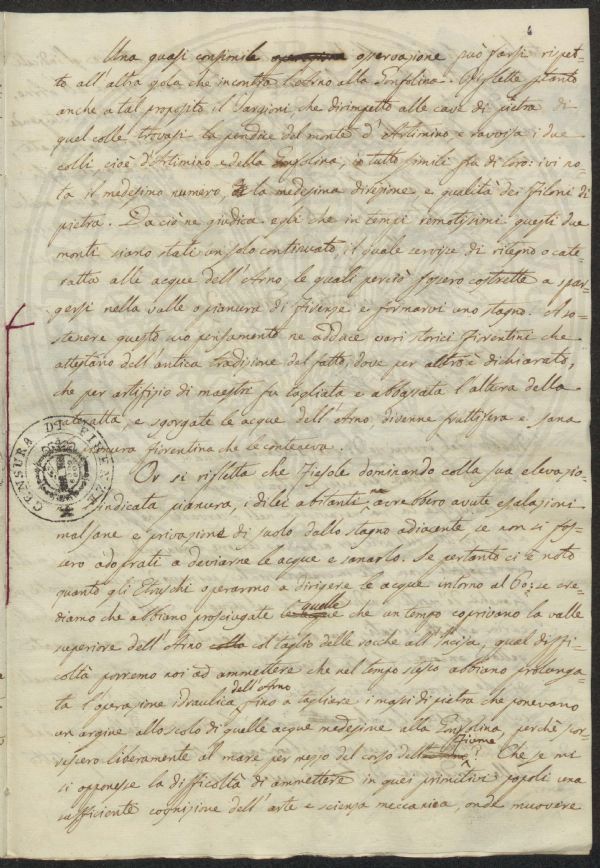 Una quasi consimile osservazione può farsi rispet-
to all'altra gola che incontra l'Arno alla Gonfolina. Riflette pertanto
anche a tal proposito il Targioni, che dirimpetto alle cave di pietra di
quel colle trovasi la pendice del monte d'Artimino e ravvisa i due
colli cioè d'Artimino e della Gonfolina, in tutto simili fra di loro: ivi no-
ta il medesimo numero, la medesima direzione e qualità dei filoni di
pietra. Da ciò ne giudica egli che in tempi remotissimi questi due
monti siano stati un solo continuato, il quale servisse di ritegno o cate-
ratta alle acque dell'Arno, le quali perciò fossero costrette a spar-
gersi nella valle o pianura di Firenze e formarvi uno stagno. A so-
stenere questo suo pensamento ne adduce vari storici fiorentini che
attestano dell'antica tradizione del fatto, dove per altro è dichiarato,
che per artifizio di maestri fu tagliata e abbassata l'altura della
cateratta, e sgorgate le acque dell'Arno, divenne fruttifera e sana
pianura fiorentina che le conteneva.
Or si rifletta che Fiesole dominando colla sua elevazio-
indicata pianura, i di lei abitanti ne avrebbero avute esalazioni
malsane e privazione di suolo dallo stagno adiacente se non si fos-
sero adoprati a deviarne le acque e sanarlo. Se pertanto ci è noto
quanto gli Etruschi operarono a dirigere le acque intorno al Po: se cre-
diamo che abbiano prosciugate quelle che un tempo coprivano la valle
superiore dell'Arno col taglio delle rocche all'Incisa, qual diffi-
coltà porremo noi ad ammettere che nel tempo stesso abbiano prolunga-
ta l'operazione idraulica dell'Arno fino a tagliare i massi di pietra che ponevano
un argine allo scolo di quelle acque medesime alla Gonfolina, perchè scor-
ressero liberamente al mare per mezzo del corso del Fiume? Che se mi
si opponesse la difficoltà di ammettere in quei primitivi popoli una
sufficiente cognizione dell'arte e scienza meccanica, onde muovere
CENSURA DI FIRENZE